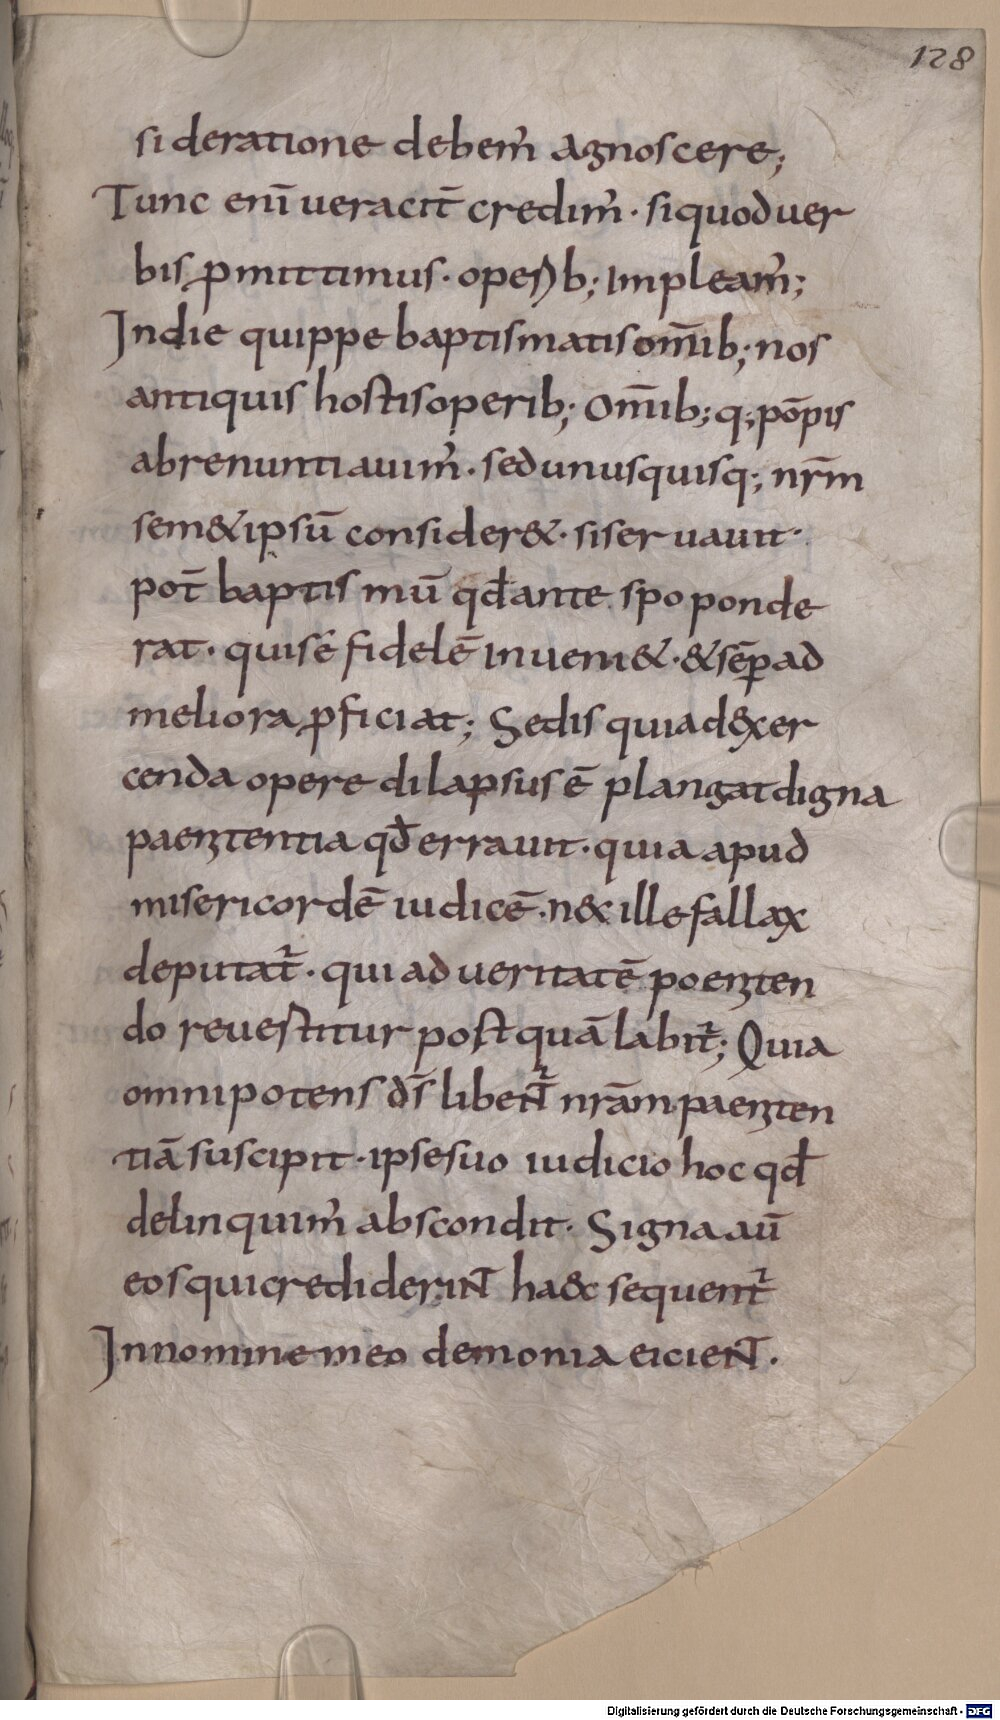 128
sideratione debem̃ agnoscere;
Tunc enī ueracit̄ credim̃· si quod uer
bis ꝓmittimus· opeꝝb; impleam̃;
In die quippe baptismatis om̄ib; nos
antiquis hostis operib; Om̄ib; q; pōpis
abrenuntiauim̃· sed unusquisq; nr̄m
sem&ipsū consider&· si seruauit·
pot̄ baptismū qđ ante sposponde
rat· qui sē fidelē inueni&· & sēꝑ ad
meliora ꝓficiat; Sed is qui ad exer
cenda opere dilapsus ē plangat digna
paenitentia qđ errauit· quia apud
misericordē iudicē· n& ille fallax
deputat̄· qui ad ueritatē poeniten
do reuestitur postquā labit̄; Quia
omnipotens d̄s libent̄ nr̄am paeniten
tiā suscipit· ipse suo iudicio hoc qđ
delinquim̃ abscondit· Signa aū
eos qui crediderint haec sequent̄
In nomine meo demonia eicient·
Digitalisierung gefördert durch die Deutsche Forschungsgemeinschaft - DFG